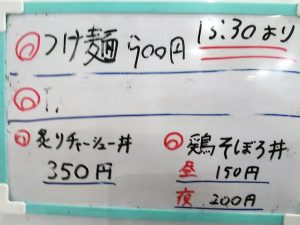 つけ麺 900円 15:30より
炙りチャーシュー丼
350円
鶏そぼろ丼
昼 150円
夜 200円